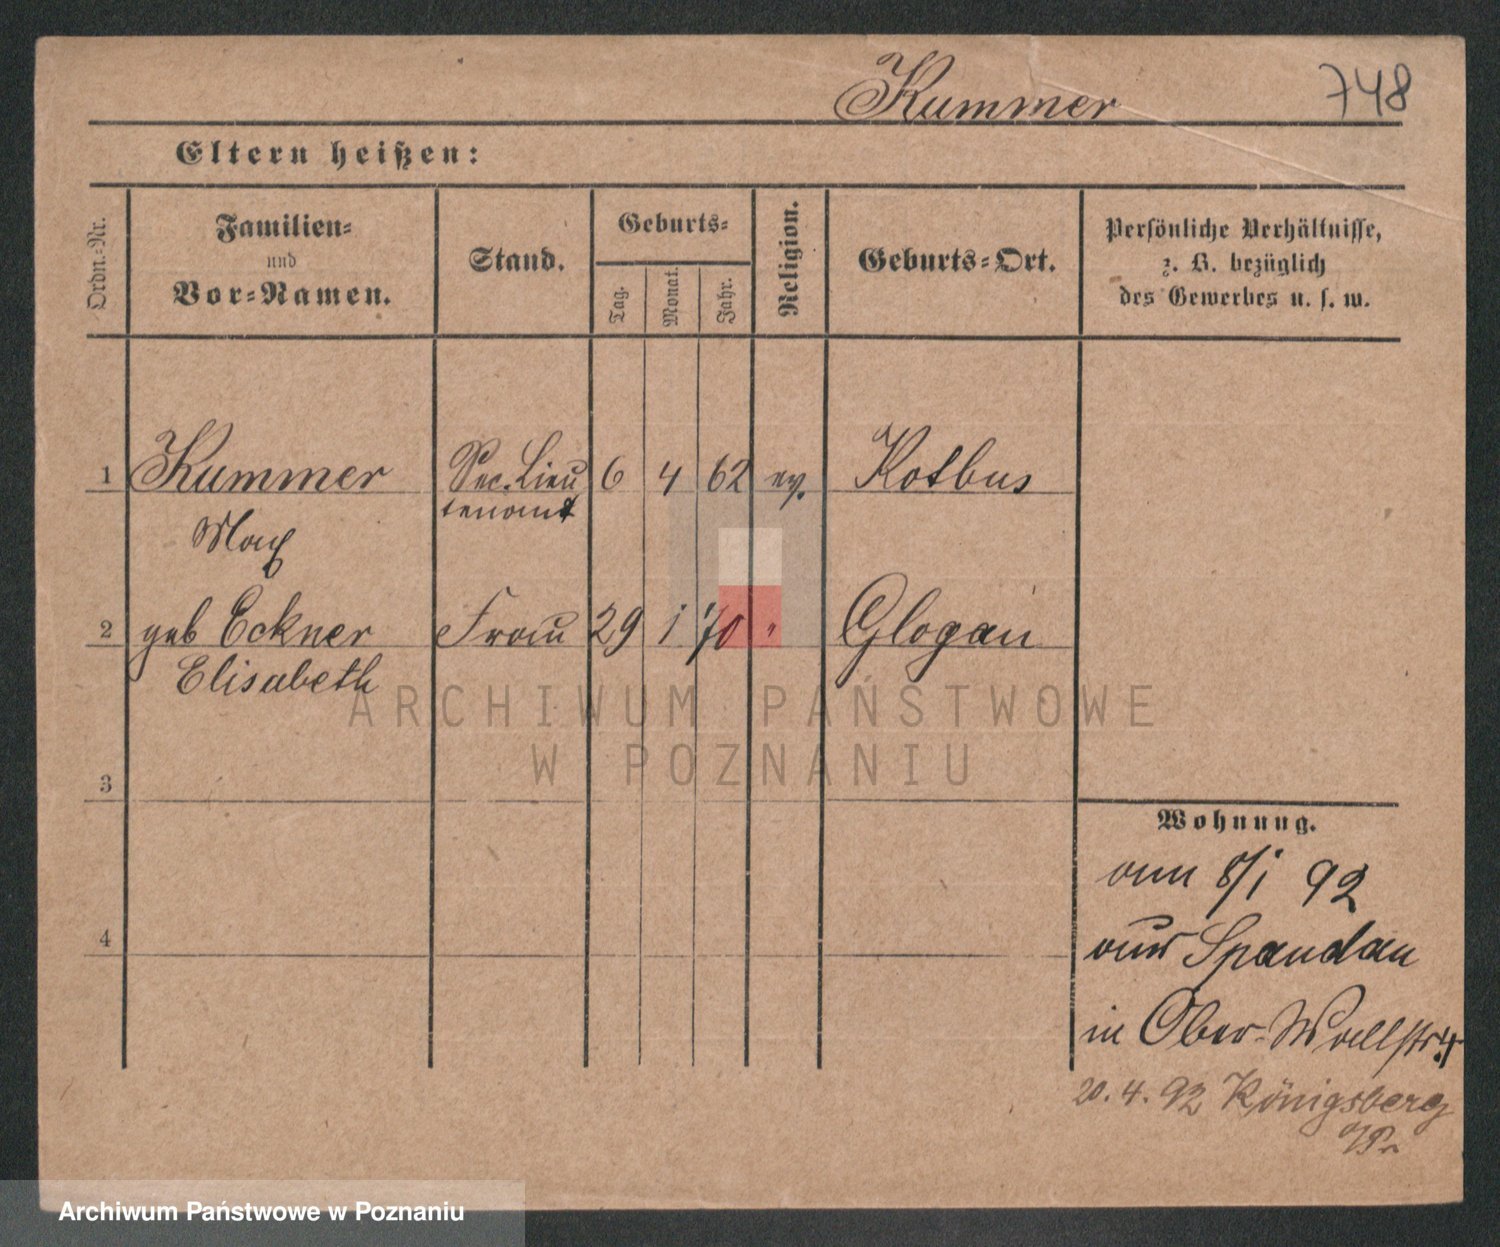 Kummer 748
Eltern heißen:
Ordn.-Nr.
Familien-
und
Vor-Namen.
Stand.
Geburts-
Tag.
Monat.
Jahr.
Religion.
Geburts-Ort.
Persönliche Verhältnisse,
z. B. bezüglich
des Gewerbes u. s. w.
1 Kummer Sec. Lieu 6 4 62 ev. Kotbus
tenant
Max
2 geb Eckner Frau 29 1 70 " Glogau
Elisabeth
ARCHIWUM PAŃSTWOWE
W POZNANIU
3
Wohnung.
am 8/1 92
aus Spandau
4
in Ober-Wallstr. 4
20. 4. 92 Königsberg
i/Pr
Archiwum Państwowe w Poznaniu